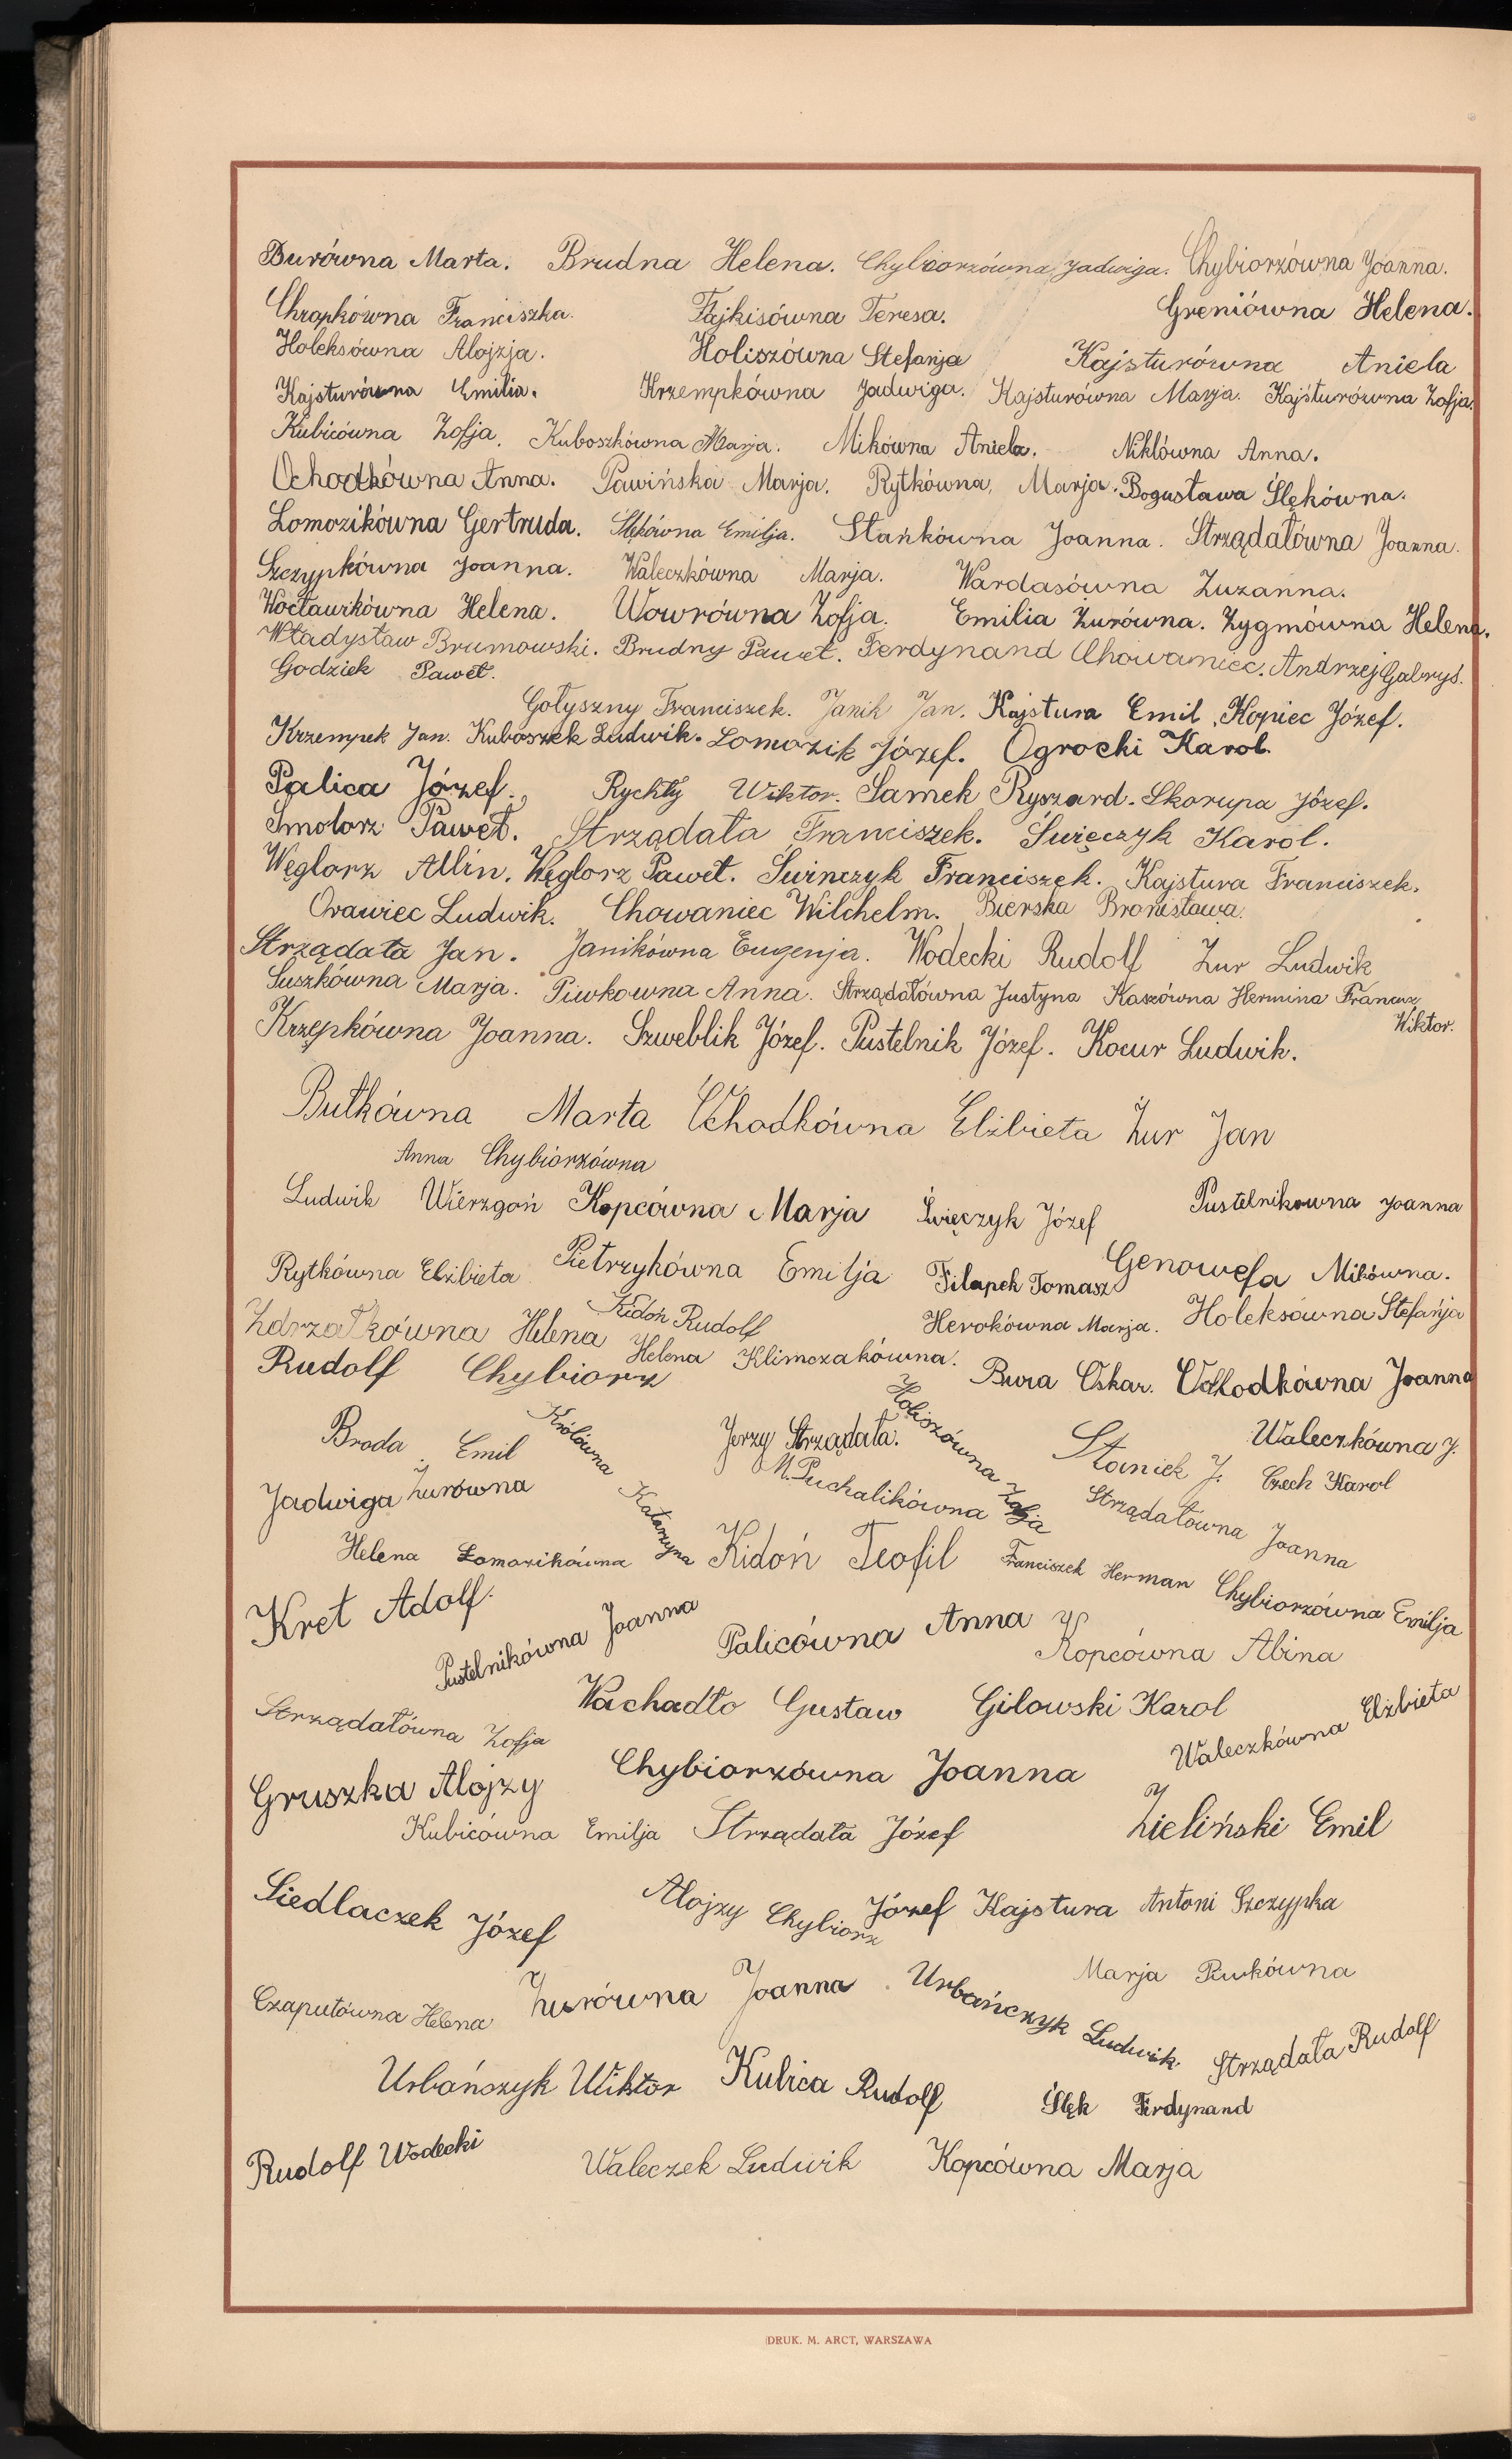 Burówna Marta. Brudna Helena. Chybiorzówna Jadwiga. Chybiorzówna Joanna.
Chrapkówna Franciszka. Fajkisówna Teresa. Greniówna Helena.
Holeksówna Alojzja. Holiszówna Stefanja Kajsturówna Aniela
Kajsturówna Emilia. Krzempkówna Jadwiga. Kajsturówna Marja. Kajsturówna Zofja.
Kubicówna Zofja. Kuboszkówna Marja. Mikówna Aniela. Niklówna Anna.
Ochodkówna Anna. Pawińska Marja. Rytkówna, Marja. Bogusława Ślękówna.
Łomozikówna Gertruda. Ślękówna Emilja. Stańkówna Joanna. Strządałówna Joanna.
Szczypkówna Joanna. Waleczkówna Marja. Wardasówna Zuzanna.
Wocławikówna Helena. Wowrówna Zofja. Emilia Żurówna. Zygmówna Helena.
Władysław Brumowski. Brudny Paweł. Ferdynand Chowaniec. Andrzej Gabryś.
Godziek Paweł.
Gołyszny Franciszek. Janik Jan. Kajstura Emil. Kopiec Józef.
Krzempek Jan. Kuboszek Ludwik. Łomozik Józef. Ogrocki Karol.
Palica Józef. Rychły Wiktor. Samek Ryszard. Skorupa Józef.
Smolorz Paweł. Strządała Franciszek. Święczyk Karol.
Węglorz Albin. Węglorz Paweł. Świnczyk Franciszek. Kajstura Franciszek.
Orawiec Ludwik. Chowaniec Wilchelm. Bierska Bronisława.
Strządała Jan. Janikówna Eugenja. Wodecki Rudolf Żur Ludwik
Suszkówna Marja. Piwkowna Anna. Strządałówna Justyna Kaszówna Hermina Francuz
Wiktor.
Krzępkówna Joanna. Szweblik Józef. Pustelnik Józef. Kocur Ludwik.
Butkówna Marta Ochodkówna Elżbieta Żur Jan
Anna Chybiorzówna
Ludwik Wierzgoń Kopcówna Marja Święczyk Józef Pustelnikowna Joanna
Rytkówna Elżbieta Pietrzykówna Emilja Filapek Tomasz Genowefa Mikówna.
Zdrzałkówna Helena Kidoń Rudolf Herokówna Marja. Holeksówna Stefańja
Rudolf Chybiorz Helena Klimczakówna. Bura Oskar. Ochodkówna Joanna
Broda Emil Królówna Katarzyna Jerzy Strządała. Holiszówna Zofja Staniek J. Waleczkówna J.
Jadwiga Żurówna M. Puchalikówna Strządałówna Joanna Czech Karol
Helena Łomozikówna Kidoń Teofil Franciszek Herman Chybiorzówna Emilja
Kret Adolf. Pustelnikówna Joanna Palicówna Anna Kopcówna Abina
Strządałówna Zofja Wachadło Gustaw Gilowski Karol Waleczkówna Elżbieta
Gruszka Alojzy Chybiorzówna Joanna
Kubicówna Emilja Strządała Józef Zieliński Emil
Siedlaczek Józef Alojzy Chybiorz Józef Kajstura Antoni Szczypka
Czaputówna Helena Żurówna Joanna. Urbańczyk Ludwik. Marja Piwkówna
Urbańszyk Wiktor Kubica Rudolf Ślęk Ferdynand Strządała Rudolf
Rudolf Wodecki Waleczek Ludwik Kopcówna Marja
DRUK. M. ARCT, WARSZAWA